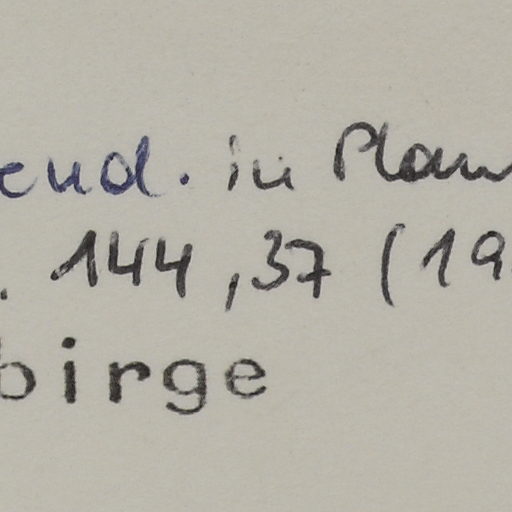 eud. in Plan
. 144,37 (19
birge